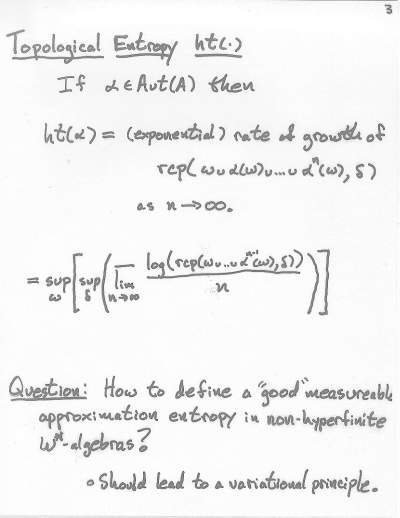 3
Topological Entropy ht(·)
If α ∈ Aut(A) then
ht(α) = (exponential) rate of growth of
rcp(ω ∪ α(ω) ∪ ... ∪ αⁿ(ω), δ)
as n → ∞.
= sup_ω [ sup_δ ( \overline{lim}_{n→∞} log(rcp(ω ∪ ... ∪ αⁿ⁻¹(ω), δ)) / n ) ]
Question: How to define a "good" measureable
approximation entropy in non-hyperfinite
W*-algebras?
∘ Should lead to a variational principle.